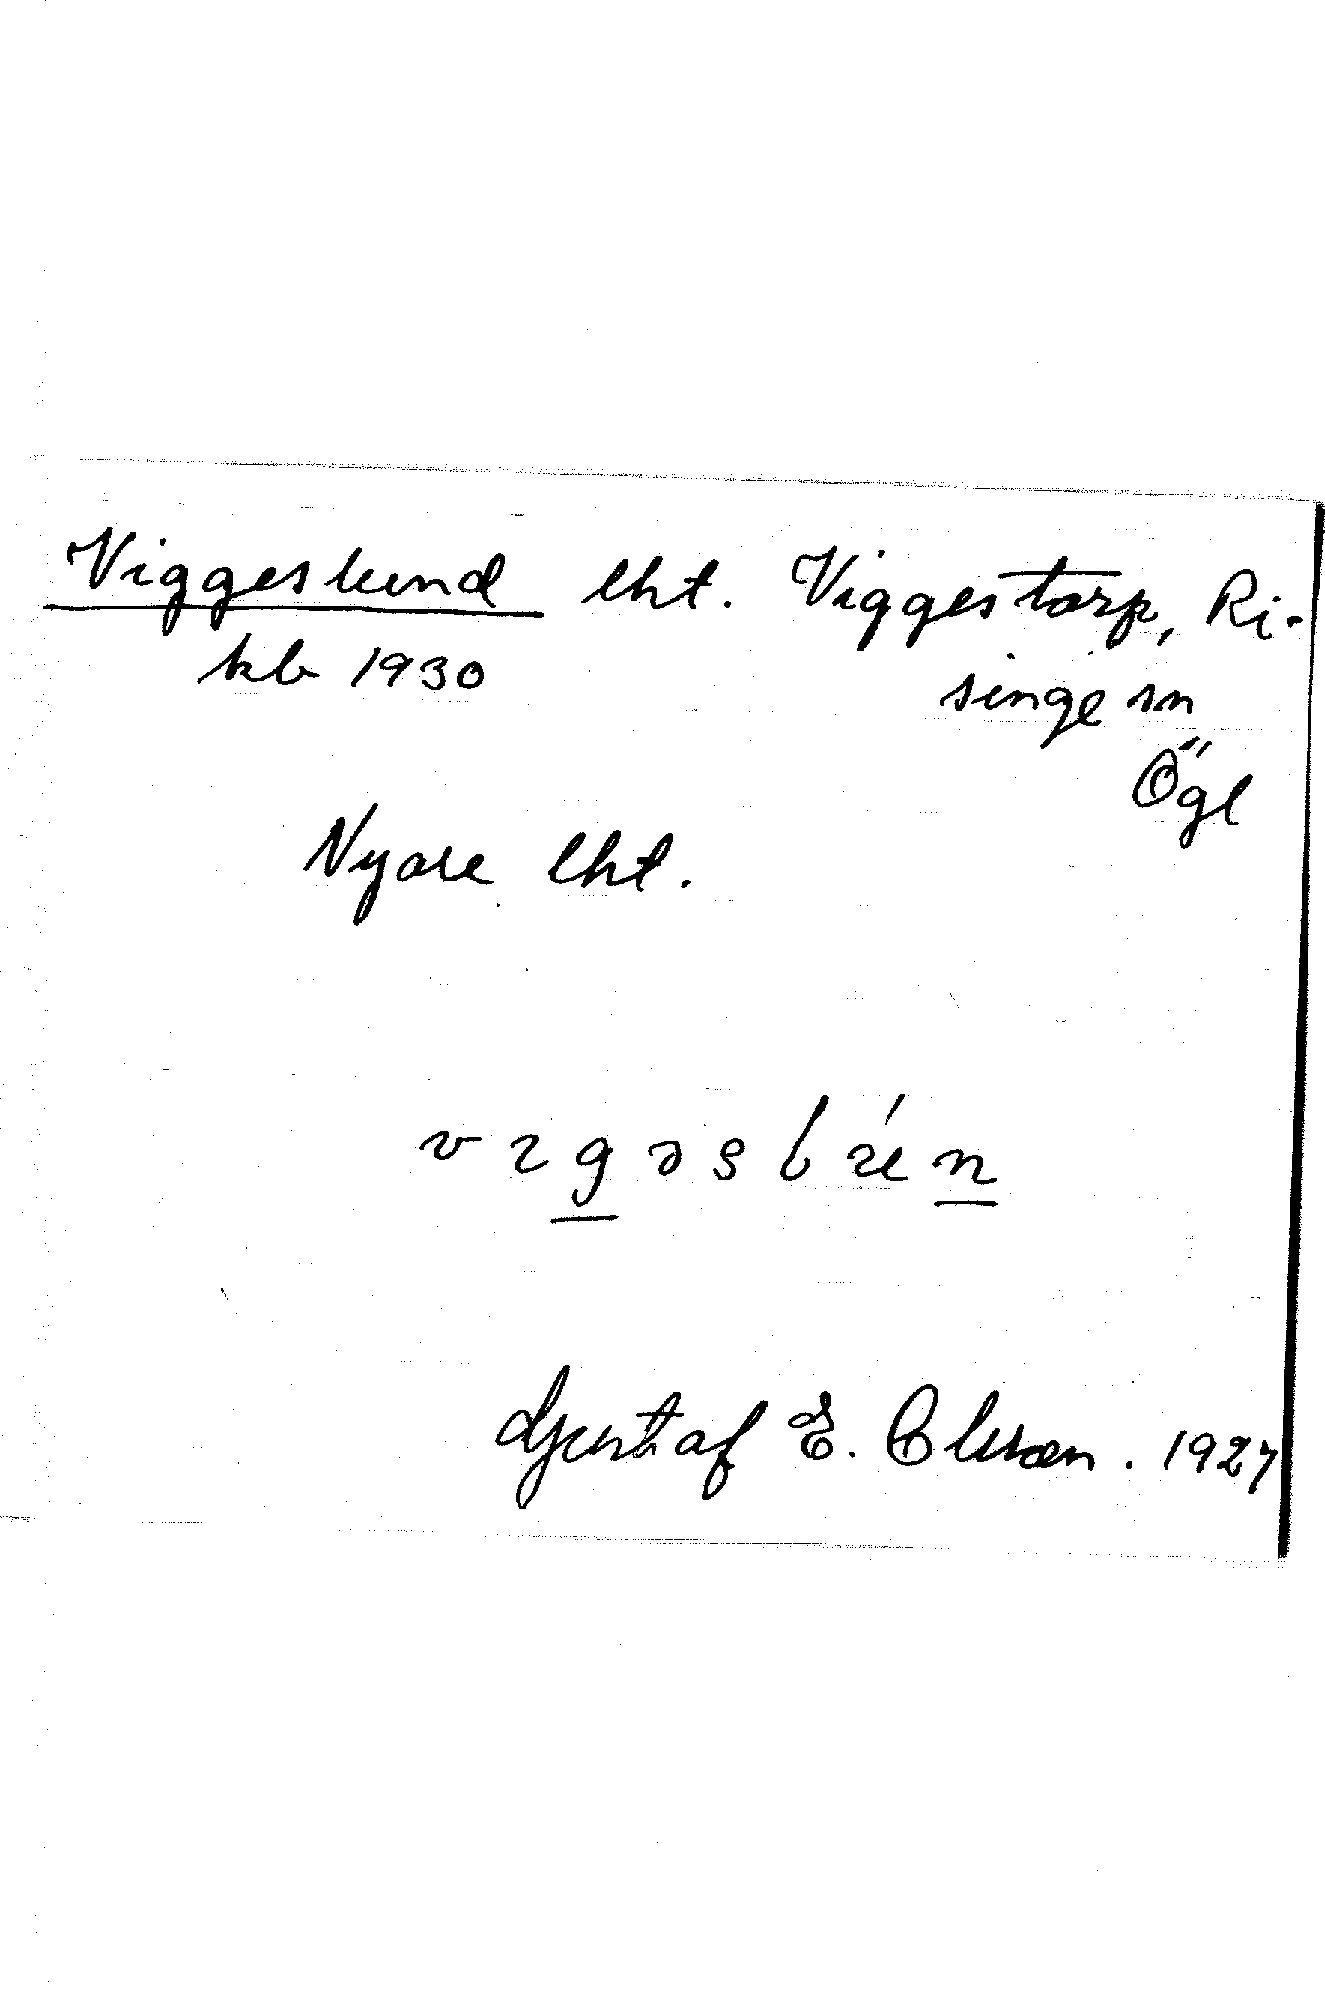 Viggeslund lht. Viggestorp, Ri-
kb 1930 singe sn
Ögl
Nyare lht.
Gustaf E. Olsson. 1927